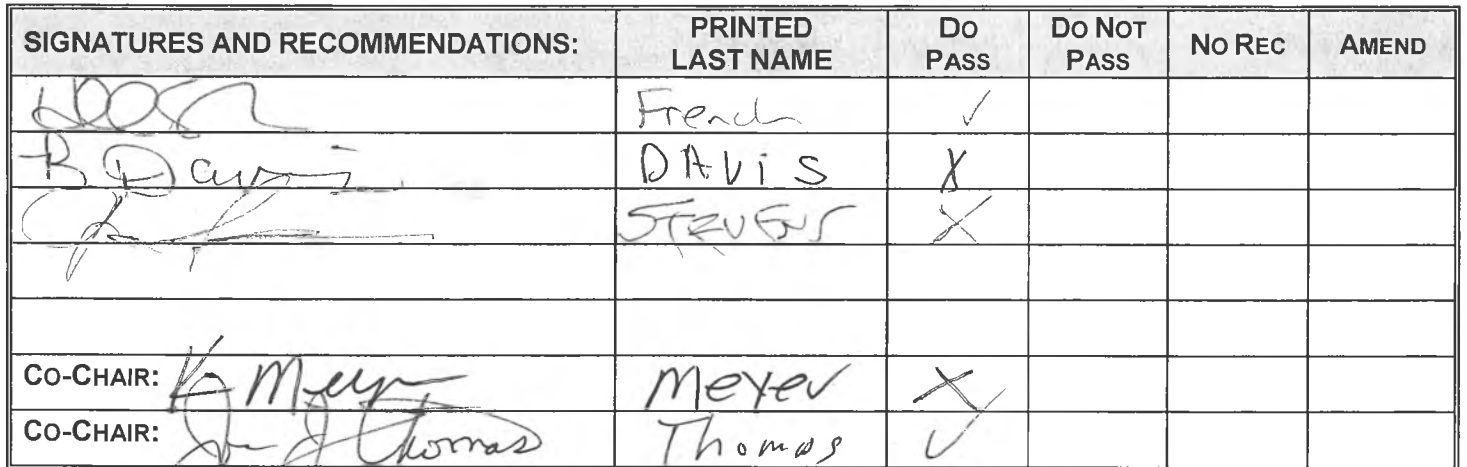 SIGNATURES AND RECOMMENDATIONS: PRINTED LAST NAME DO PASS DO NOT PASS NO REC AMEND
French ✓
B Davis DAVIS X
STEVENS X
CO-CHAIR: K Meyer Meyer X
CO-CHAIR: J Thomas Thomas ✓